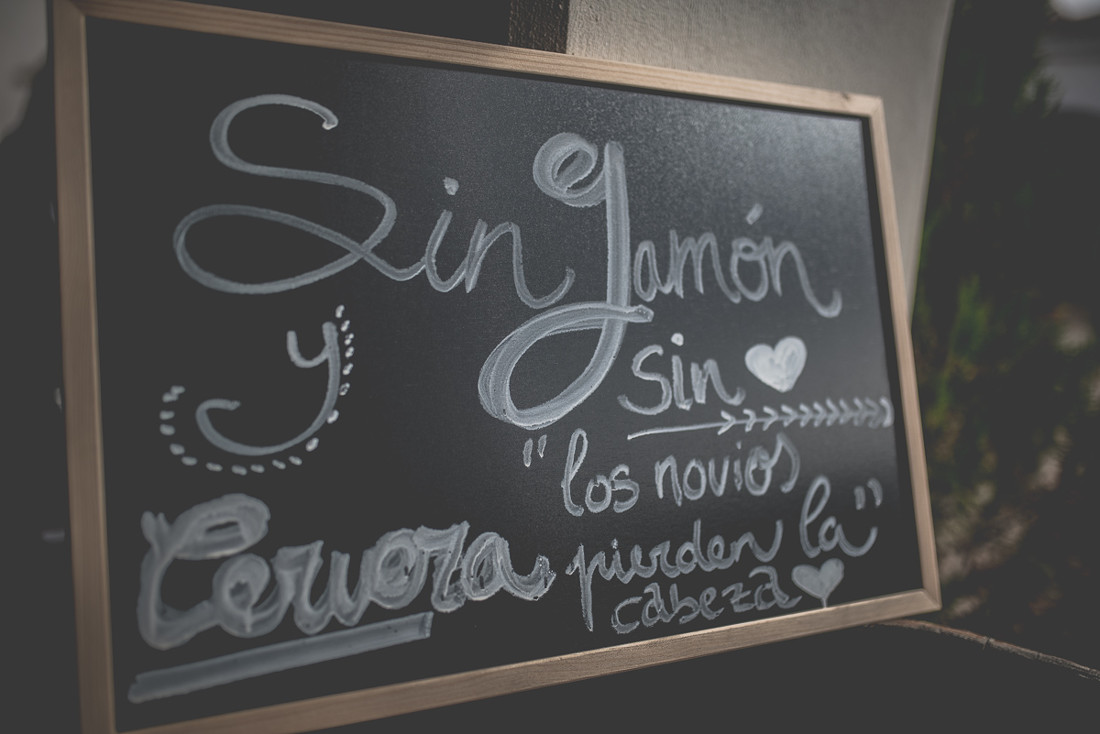 Sin Jamón
y sin
Cerveza
"los novios
pierden la"
cabeza